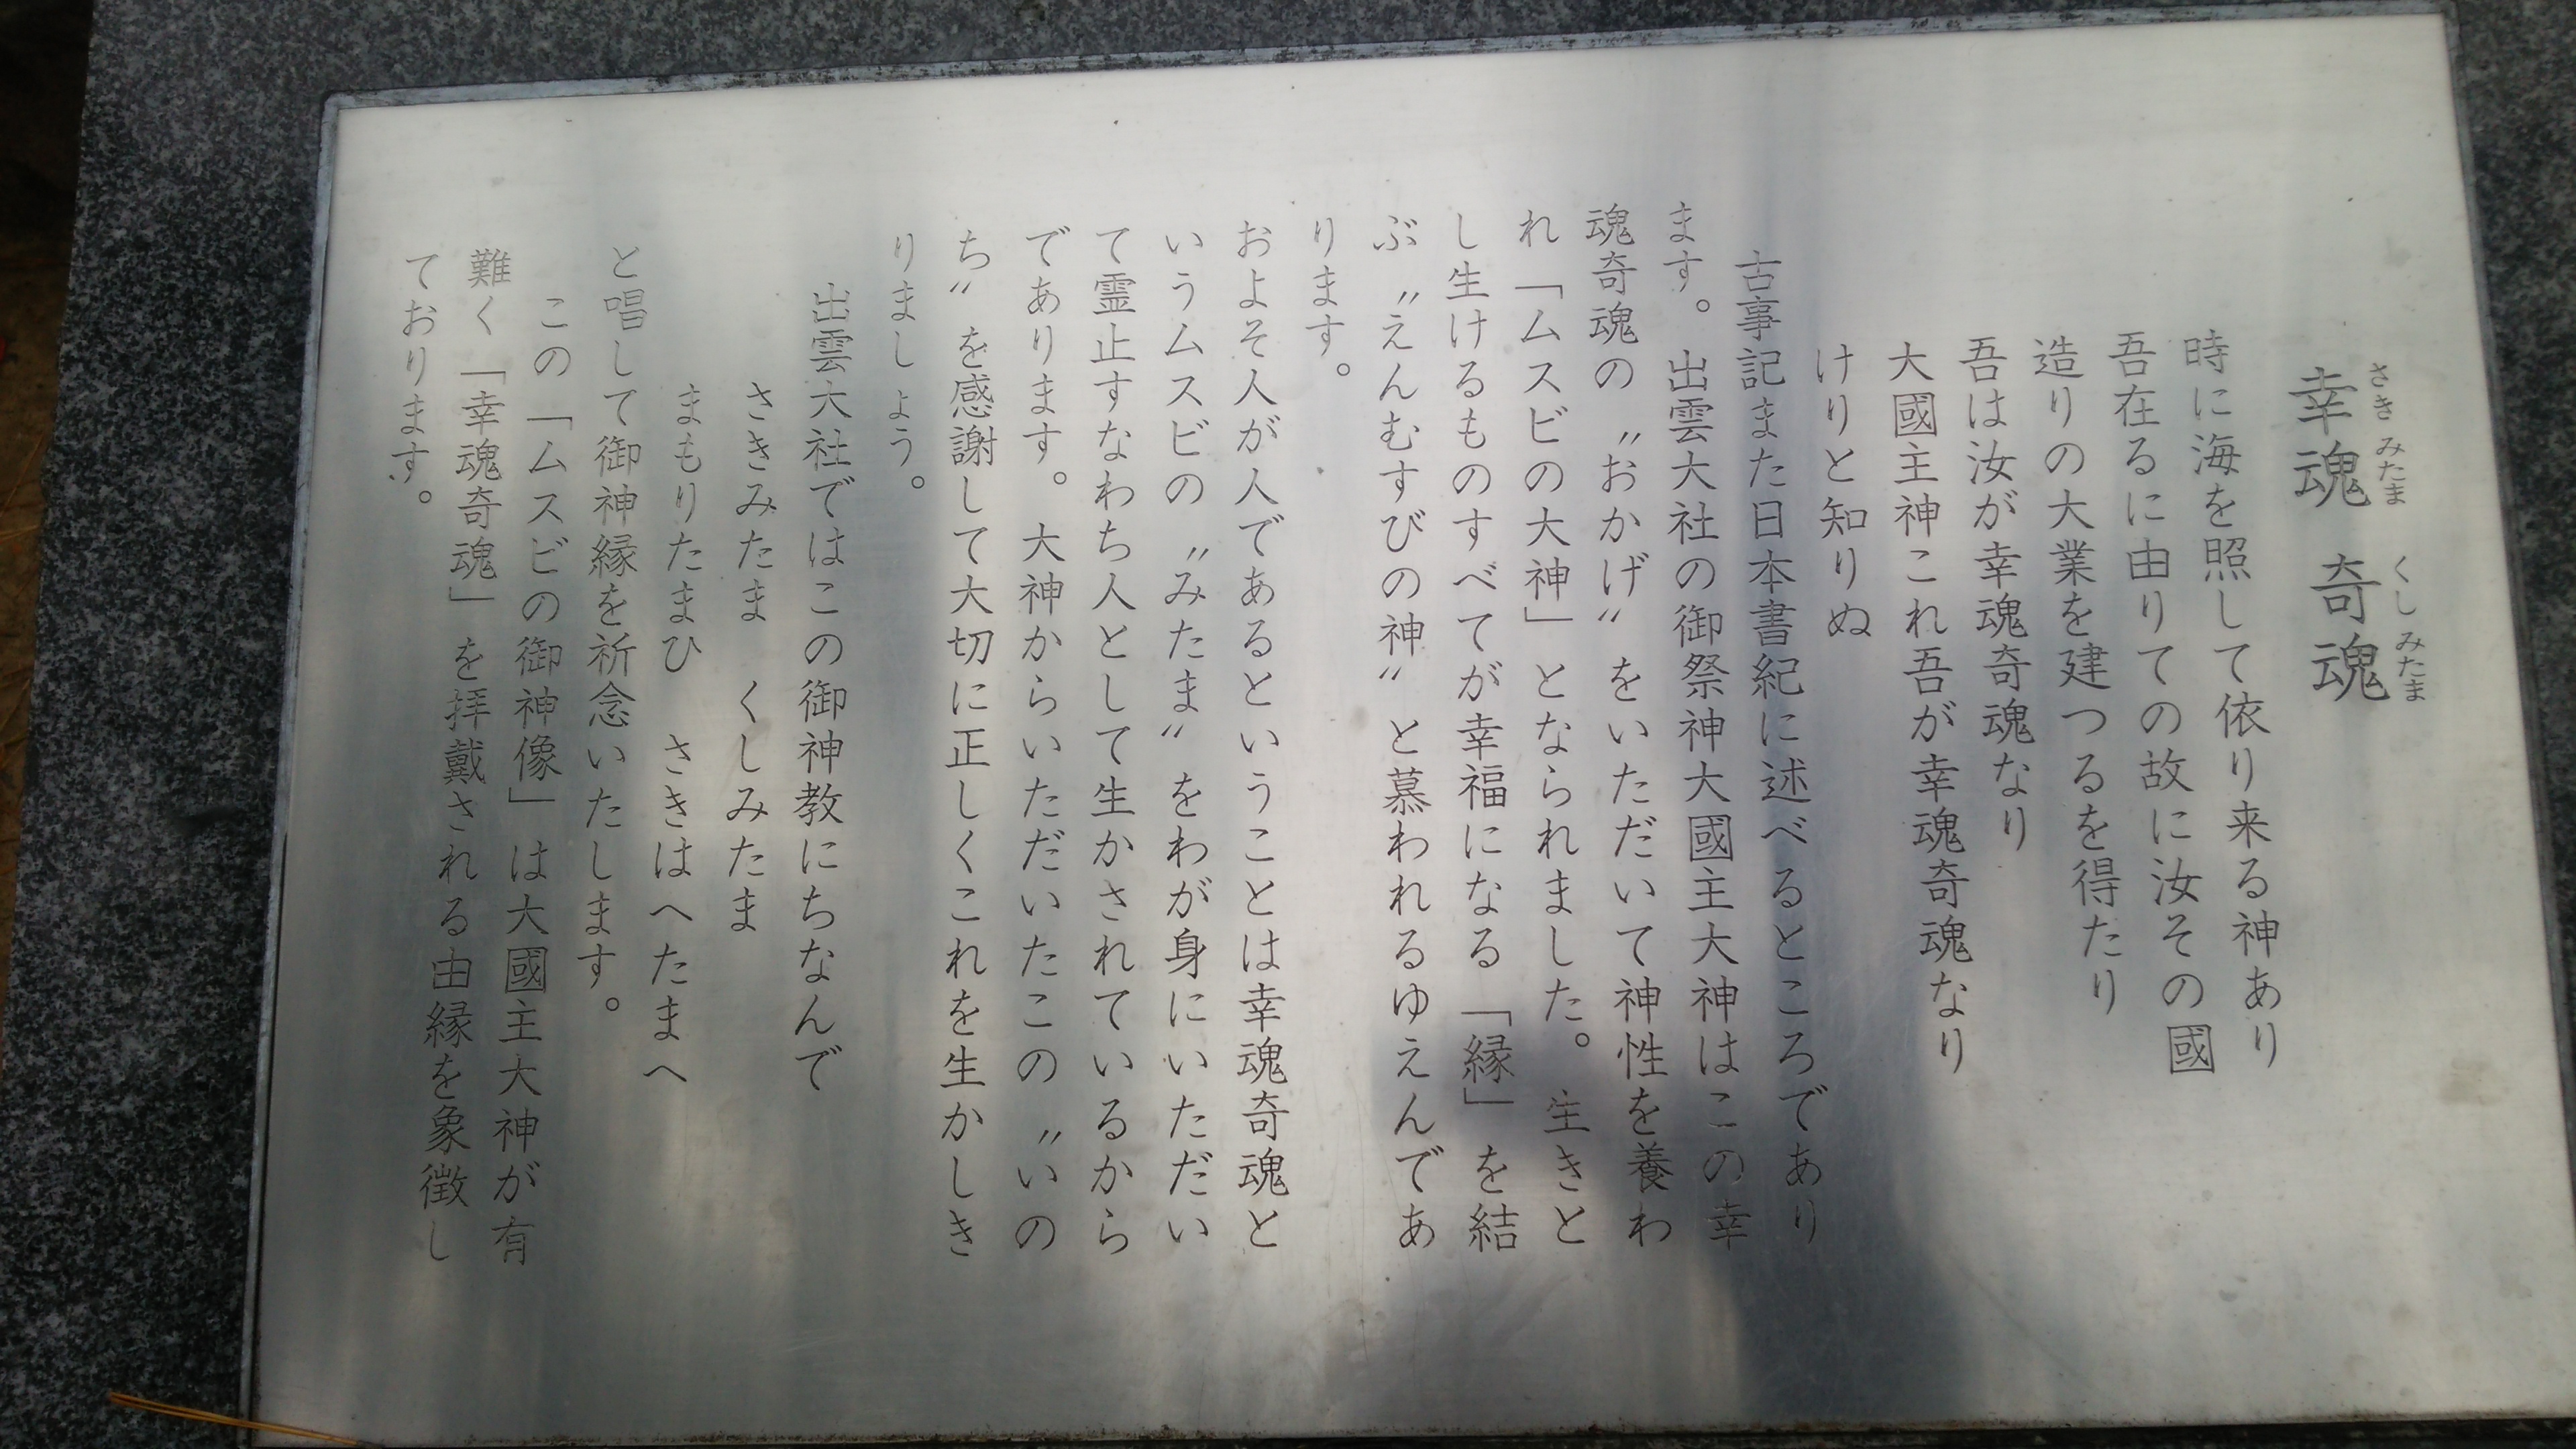 幸魂 奇魂
さき みたま くし みたま
時に海を照して依り来る神あり
吾在るに由りての故に汝その國
造りの大業を建つるを得たり
吾は汝が幸魂奇魂なり
大國主神これ吾が幸魂奇魂なり
けりと知りぬ
古事記また日本書紀に述べるところであり
ます。出雲大社の御祭神大國主大神はこの幸
魂奇魂の〝おかげ〟をいただいて神性を養わ
れ「ムスビの大神」となられました。生きと
し生けるものすべてが幸福になる「縁」を結
ぶ〝えんむすびの神〟と慕われるゆえんであ
ります。
およそ人が人であるということは幸魂奇魂と
いうムスビの〝みたま〟をわが身にいただい
て霊止すなわち人として生かされているから
であります。大神からいただいたこの〝いの
ち〟を感謝して大切に正しくこれを生かしき
りましょう。
出雲大社ではこの御神教にちなんで
さきみたま くしみたま
まもりたまひ さきはへたまへ
と唱して御神縁を祈念いたします。
この「ムスビの御神像」は大國主大神が有
難く「幸魂奇魂」を拝戴される由縁を象徴し
ております。